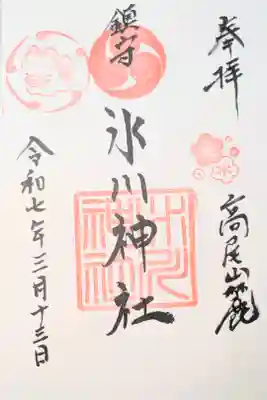 奉拝
高尾山麓
鎮守
氷川神社
令和七年三月十三日